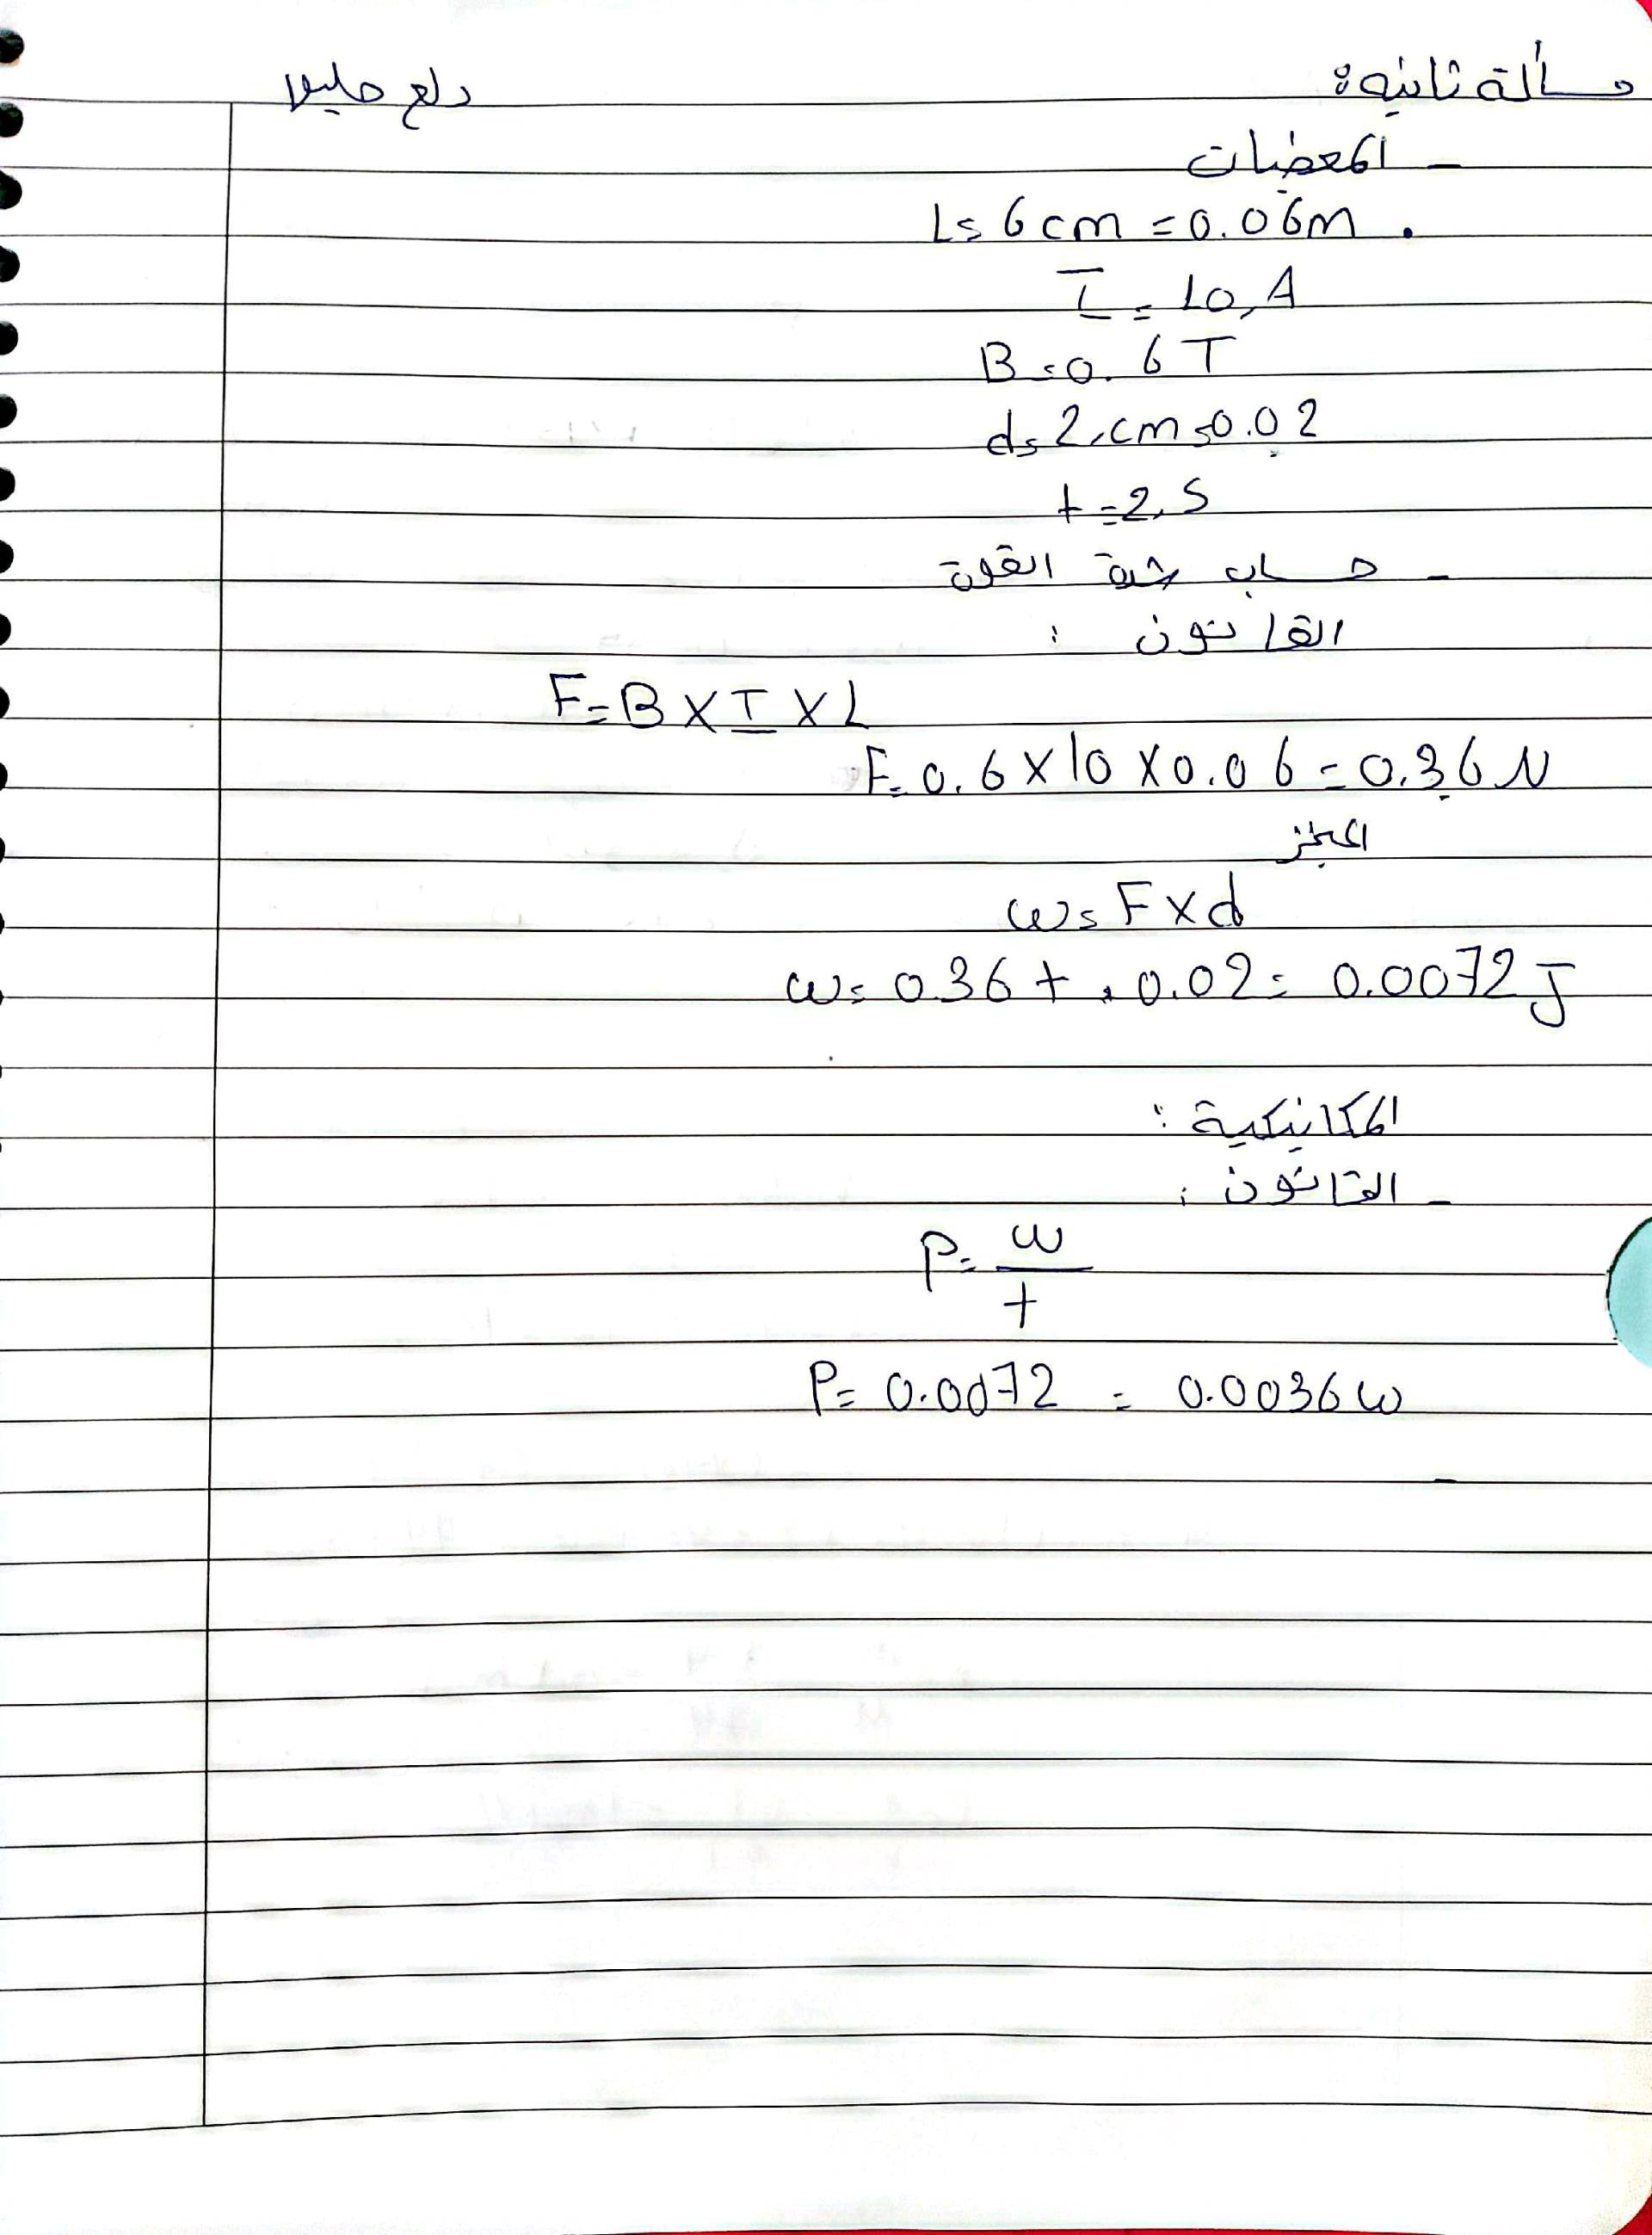 مسألة ثانية:
المعضيات -
L = 6 cm = 0.06 m .
I = 10, A
B = 0. 6 T
d = 2, cm = 0.02
t = 2, S
- حساب شدة القوة
القانون :
F = B X I X L
F = 0.6 X 10 X 0.06 = 0.36 N
w = F X d
w = 0.36 + . 0.02 = 0.0072 J
المكانيكية :
- القانون :
P = w
t
P = 0.0072 = 0.0036 w
-